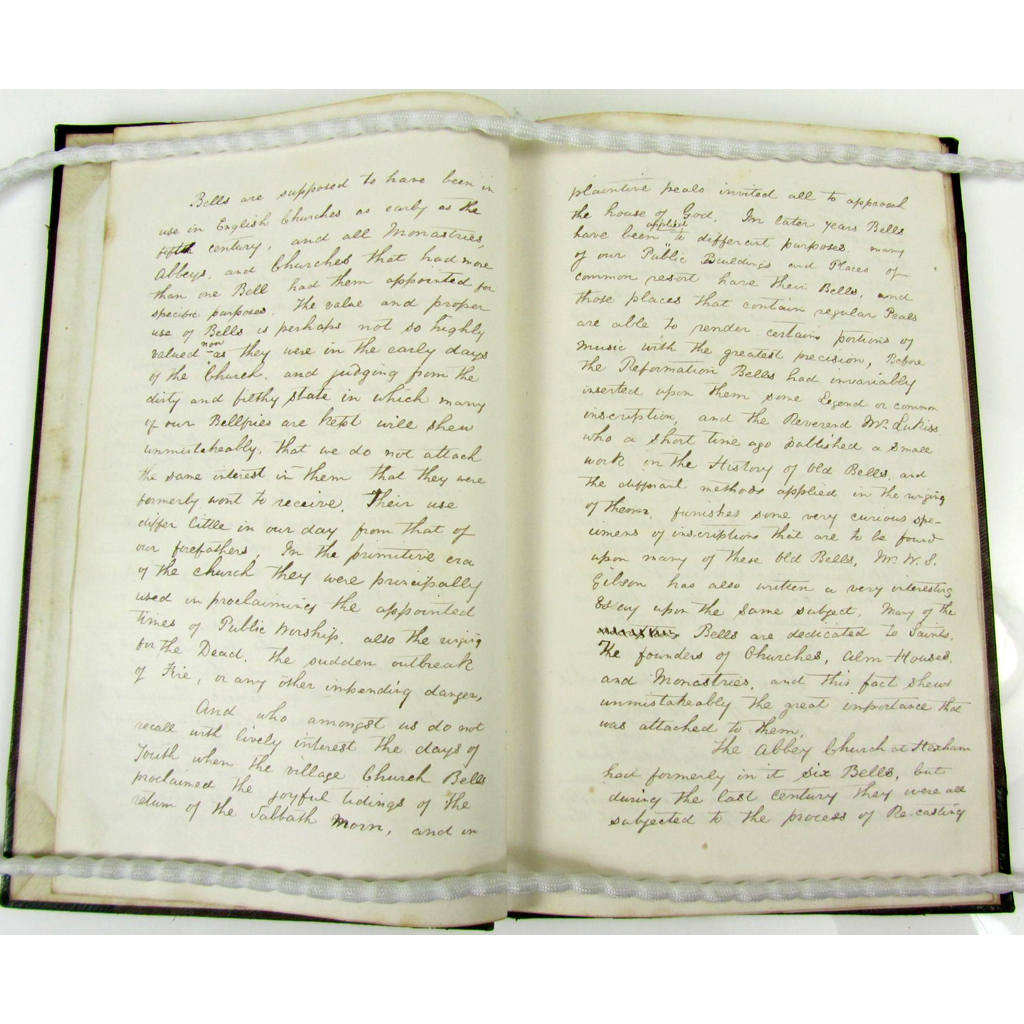 Bells are supposed to have been in
use in English Churches as early as the
century, and all Monastries,
Abbeys, and Churches that had more
than one Bell had them appointed for
specific purposes. The value and proper
use of Bells is perhaps not so highly
valued now as they were in the early days
of the Church. and judging from the
dirty and filthy state in which many
of our Bellfries are kept will shew
unmistakeably, that we do not attach
the same interest in them that they were
formerly wont to receive. Their use
differ little in our day from that of
our forefathers. In the primitive era
of the church they were principally
used in proclaiming the appointed
times of Public Worship. also the ringing
for the Dead. The sudden outbreak
of Fire, or any other impending danger,
And who amongst us do not
recall with lively interest the days of
Youth when the village Church Bells
proclaimed the joyful tidings of the
return of the Sabbath Morn, and in
plaintive peals invited all to approach
the house of God. In later years Bells
have been applied to different purposes, many
of our Public Buildings and Places of
common resort have their Bells, and
those places that contain regular Peals
are able to render certain portions of
Music with the greatest precision, Before
the Reformation Bells had invariably
inserted upon them some Legend or common
inscription, and the Reverend Mr. Lukiss
who a short time ago published a small
work on the History of Old Bells, and
the different methods applied in the ringing
of them. furnishes some very curious spe-
cimens of inscriptions that are to be found
upon many of these Old Bells, Mr. W. S.
Gibson has also written a very interesting
Essay upon the same subject. Many of the
Bells are dedicated to Saints,
The founders of Churches, Alm Houses,
and Monastries, and this fact shews
unmistakeably the great importance that
was attached to them.
The Abbey Church at Hexham
had formerly in it six Bells, but
during the last century they were all
subjected to the process of Re-casting